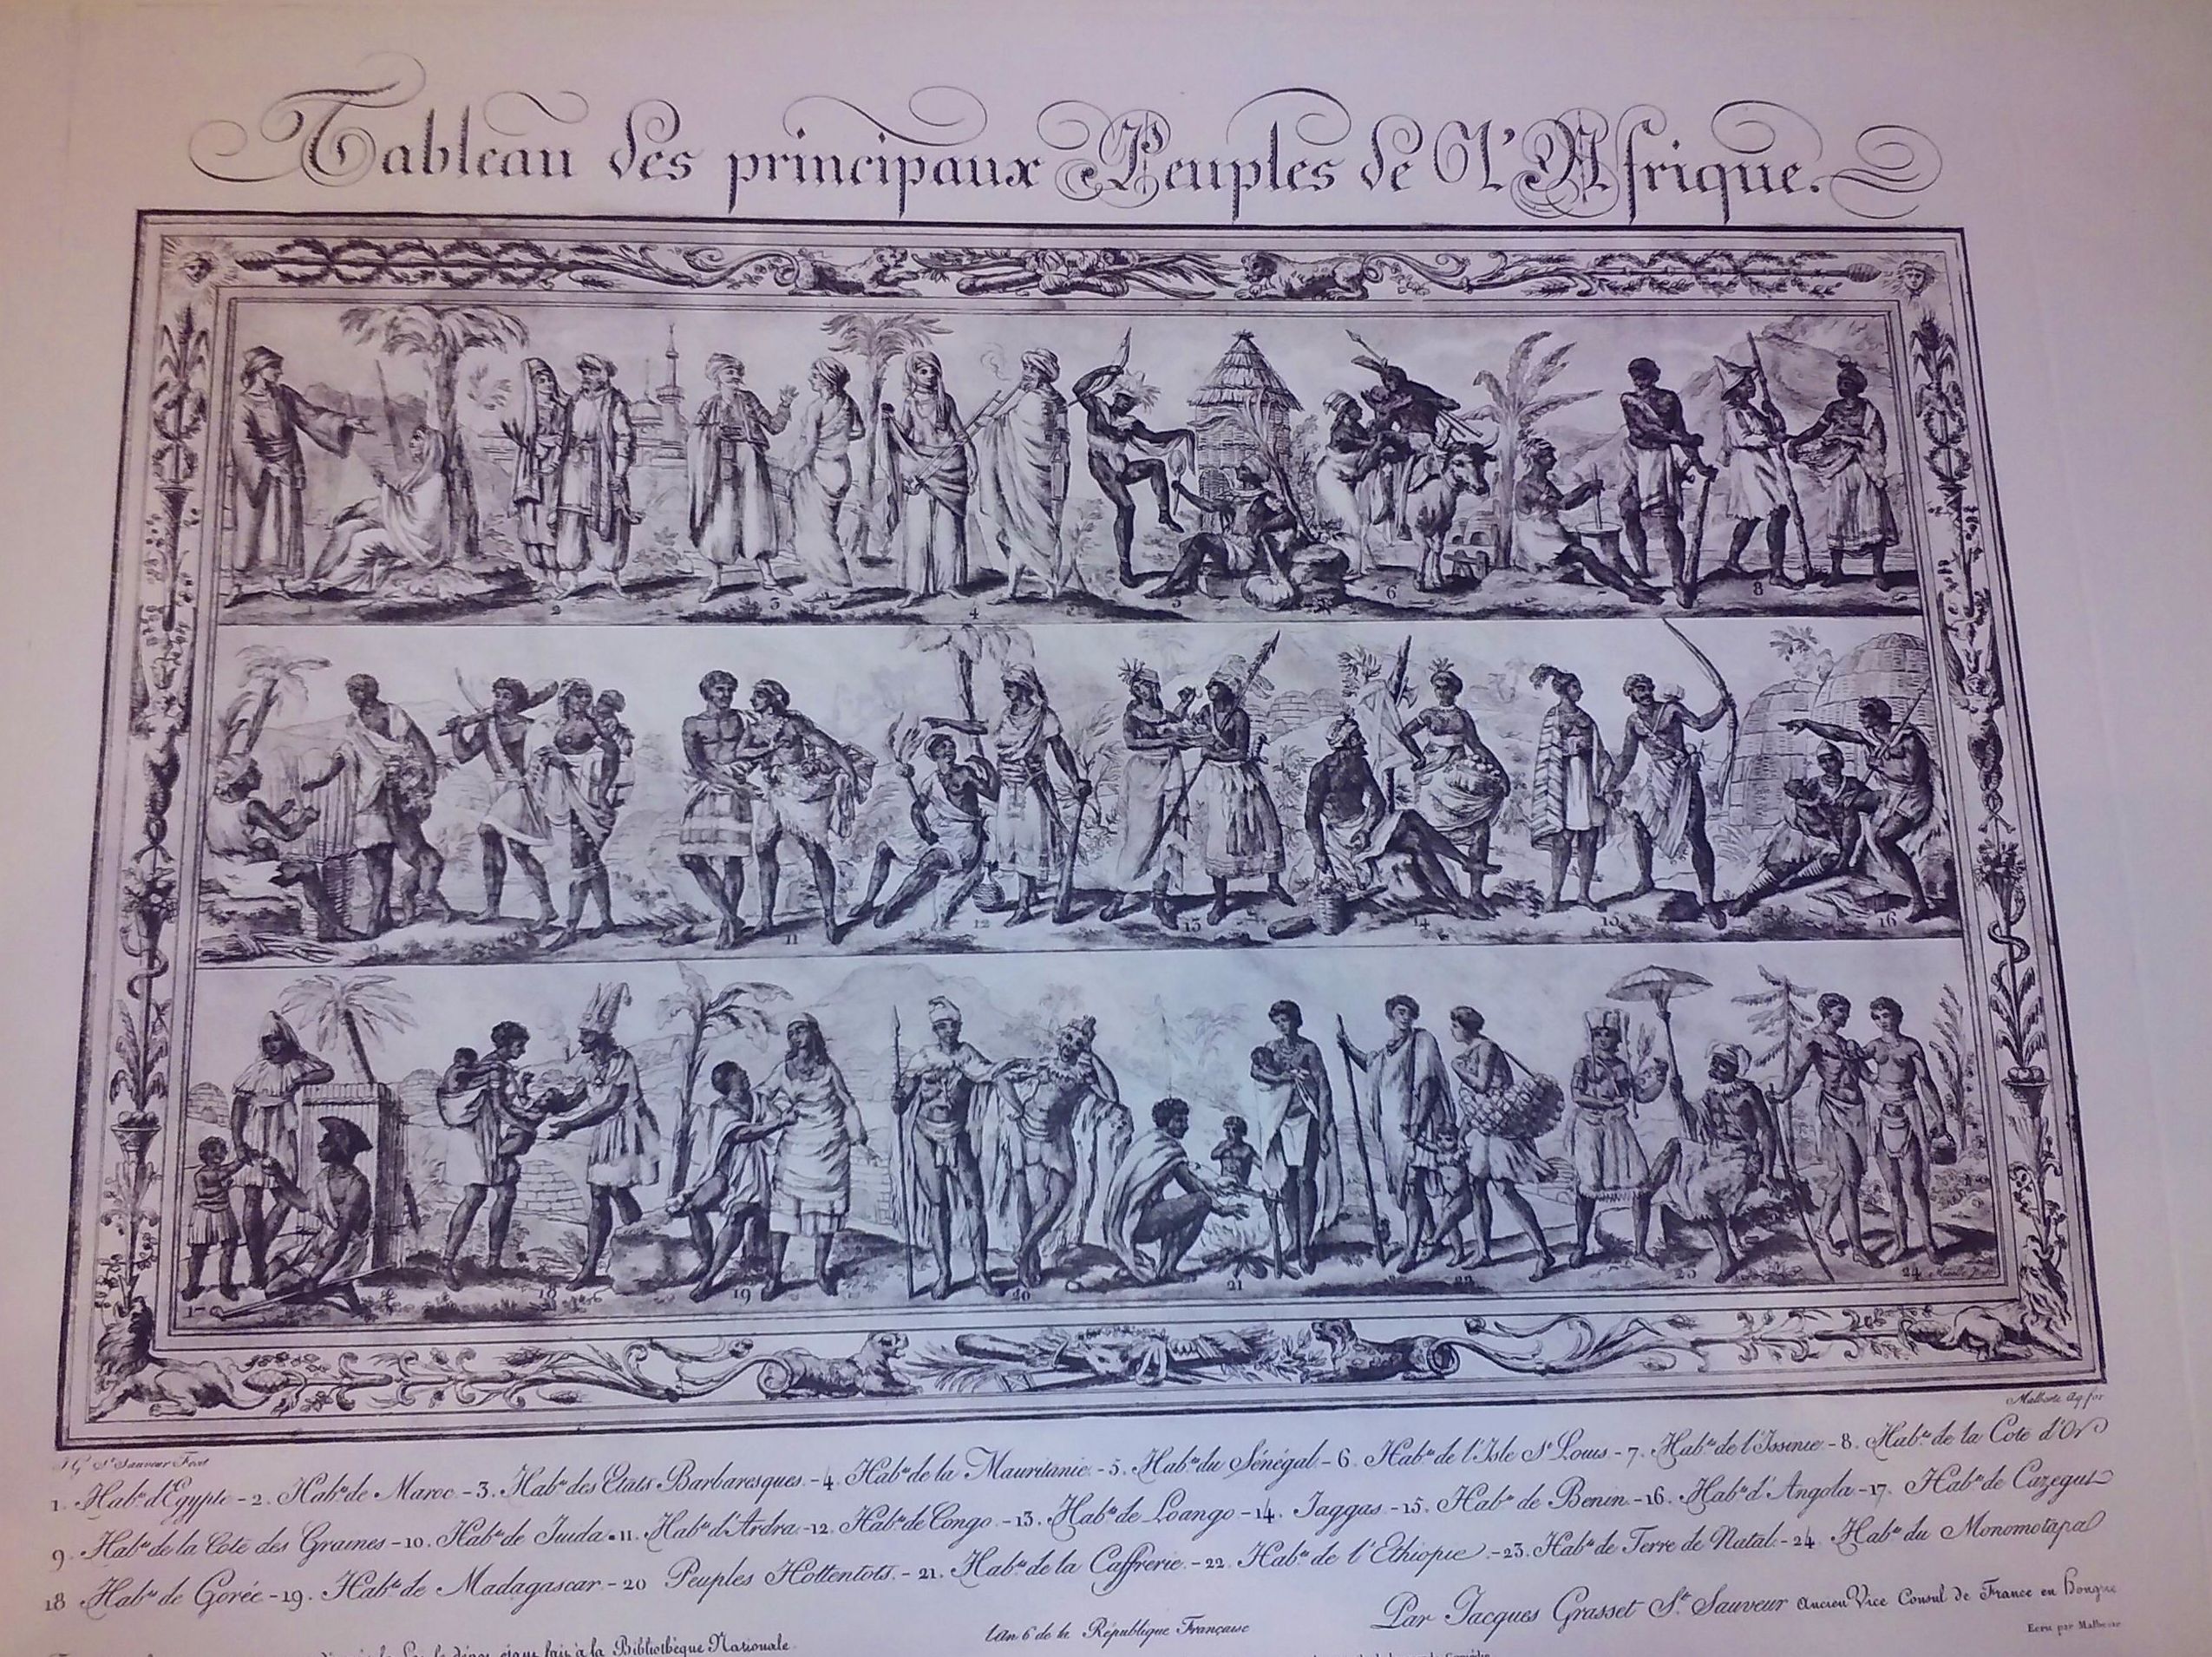 Tableau des principaux Peuples de L'Afrique.
1 2 3 4 5 6 8
9 11 12 13 14 15 16
17 18 19 20 21 22 23 24
J. G. St Sauveur Fecit
Malbeste Aq. for
1. Habts d'Egypte - 2. Habts de Maroc - 3. Habts des Etats Barbaresques - 4. Habts de la Mauritanie - 5. Habts du Sénégal - 6. Habts de l'Isle St Louis - 7. Habts de l'Issinie - 8. Habts de la Cote d'Or
9. Habts de la Cote des Graines - 10. Habts de Juida - 11. Habts d'Ardra - 12. Habts de Congo - 13. Habts de Loango - 14. Jaggas - 15. Habts de Benin - 16. Habts d'Angola - 17. Habts de Cazegut
18 Habts de Gorée - 19. Habts de Madagascar - 20 Peuples Hottentots - 21. Habts de la Caffrerie - 22. Habts de l'Ethiopie - 23. Habts de Terre de Natal - 24. Habts du Monomotapa
Par Jacques Grasset St Sauveur Ancien Vice Consul de France en Hongrie
L'An 6 de la République Française
Ecrit par Malbeste
le dépos étant fait à la Bibliothèque Nationale